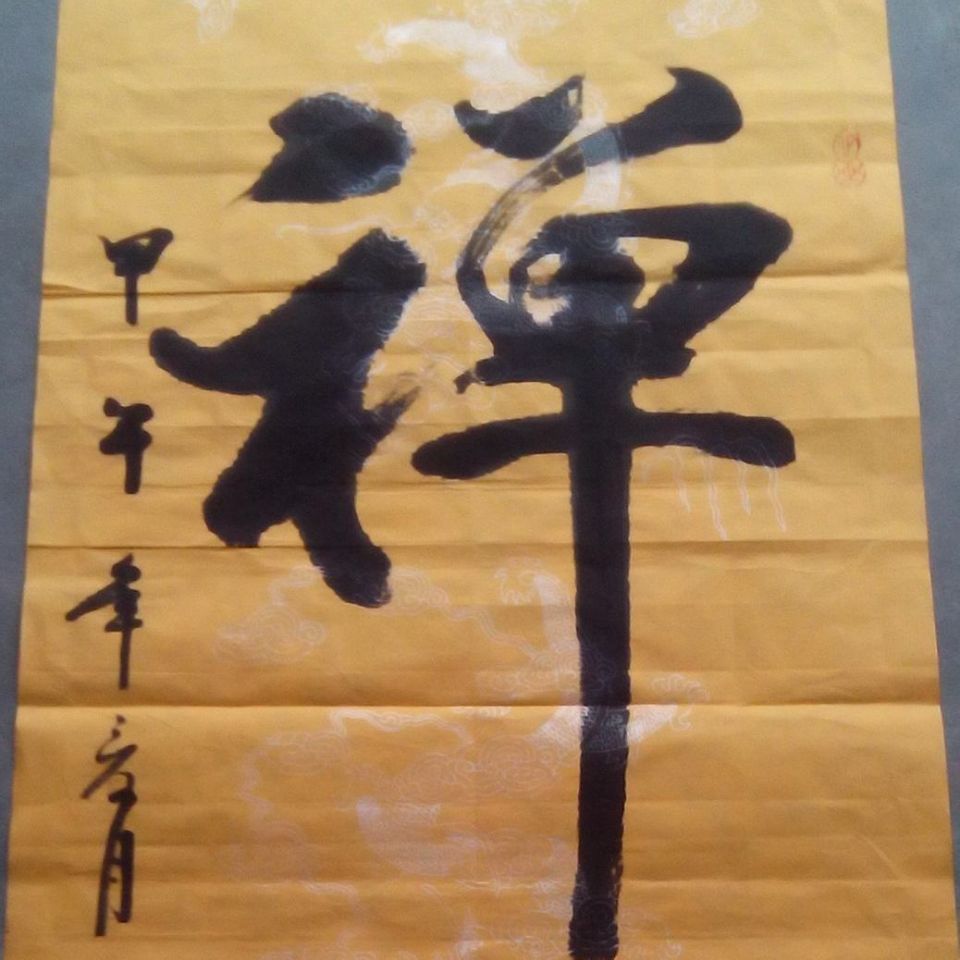 禅
甲午年夏月